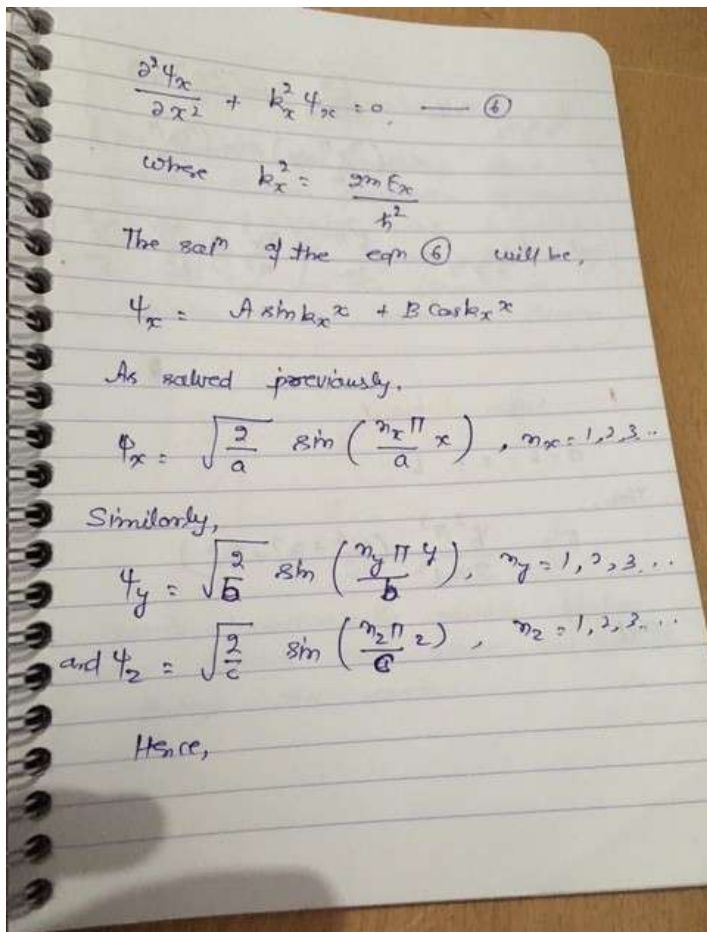 ∂²Ψx/∂x² + kx² Ψx = 0. —— ⑥
where kx² = 2mEx/ħ²
The solⁿ of the eqn ⑥ will be,
Ψx = A sin kx x + B cos kx x
As solved previously,
Ψx = √(2/a) sin (nxπ/a x), nx = 1,2,3..
Similarly,
Ψy = √(2/b) sin (nyπy/b), ny = 1,2,3...
and Ψz = √(2/c) sin (nzπ/c z), nz = 1,2,3....
Hence,